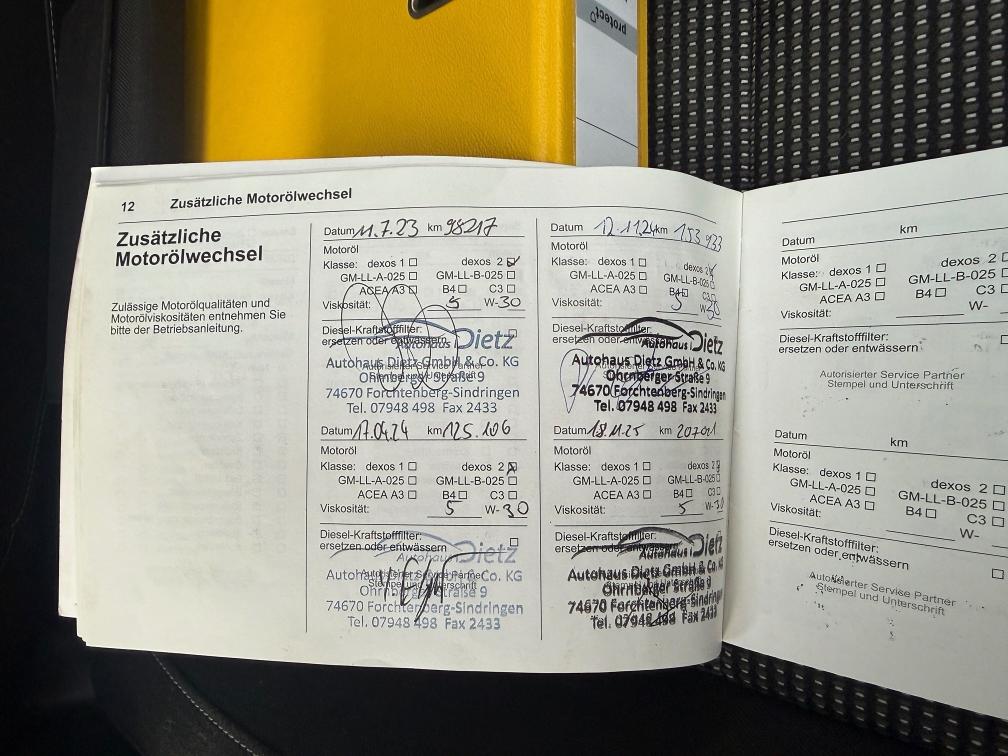 protect
12 Zusätzliche Motorölwechsel
Zusätzliche
Motorölwechsel
Zulässige Motorölqualitäten und
Motorölviskositäten entnehmen Sie
bitte der Betriebsanleitung.
Datum 11.7.23 km 98217
Motoröl
Klasse: dexos 1 ☐ dexos 2 ☑
GM-LL-A-025 ☐ GM-LL-B-025 ☐
ACEA A3 ☐ B4 ☐ C3 ☐
Viskosität: 5 W-30
Diesel-Kraftstofffilter:
ersetzen oder entwässern ☐
Autorisierter Service Partner
Stempel und Unterschrift
Autohaus Dietz
Autohaus Dietz GmbH & Co. KG
Ohrnberger Straße 9
74670 Forchtenberg-Sindringen
Tel. 07948 498 Fax 2433
Datum 17.04.24 km 125.106
Motoröl
Klasse: dexos 1 ☐ dexos 2 ☒
GM-LL-A-025 ☐ GM-LL-B-025 ☐
ACEA A3 ☐ B4 ☐ C3 ☐
Viskosität: 5 W-30
Diesel-Kraftstofffilter:
ersetzen oder entwässern ☐
Autorisierter Service Partner
Stempel und Unterschrift
Autohaus Dietz
Autohaus Dietz GmbH & Co. KG
Ohrnberger Straße 9
74670 Forchtenberg-Sindringen
Tel. 07948 498 Fax 2433
Datum 12.11.24 km 153 933
Motoröl
Klasse: dexos 1 ☐ dexos 2 ☑
GM-LL-A-025 ☐ GM-LL-B-025 ☐
ACEA A3 ☐ B4 ☐ C3 ☐
Viskosität: 5 W-30
Diesel-Kraftstofffilter:
ersetzen oder entwässern
Autohaus Dietz
Autohaus Dietz GmbH & Co. KG
Ohrnberger Straße 9
74670 Forchtenberg-Sindringen
Tel. 07948 498 Fax 2433
Datum 18.11.25 km 207021
Motoröl
Klasse: dexos 1 ☐ dexos 2 ☑
GM-LL-A-025 ☐ GM-LL-B-025 ☐
ACEA A3 ☐ B4 ☐ C3 ☐
Viskosität: 5 W-30
Diesel-Kraftstofffilter:
ersetzen oder entwässern
Autohaus Dietz
Autohaus Dietz GmbH & Co. KG
Ohrnberger Straße 9
74670 Forchtenberg-Sindringen
Tel. 07948 498 Fax 2433
Datum km
Motoröl
Klasse: dexos 1 ☐ dexos 2 ☐
GM-LL-A-025 ☐ GM-LL-B-025 ☐
ACEA A3 ☐ B4 ☐ C3 ☐
Viskosität: W-
Diesel-Kraftstofffilter:
ersetzen oder entwässern ☐
Autorisierter Service Partner
Stempel und Unterschrift
Datum km
Motoröl
Klasse: dexos 1 ☐ dexos 2 ☐
GM-LL-A-025 ☐ GM-LL-B-025 ☐
ACEA A3 ☐ B4 ☐ C3 ☐
Viskosität: W-
Diesel-Kraftstofffilter:
ersetzen oder entwässern ☐
Autorisierter Service Partner
Stempel und Unterschrift